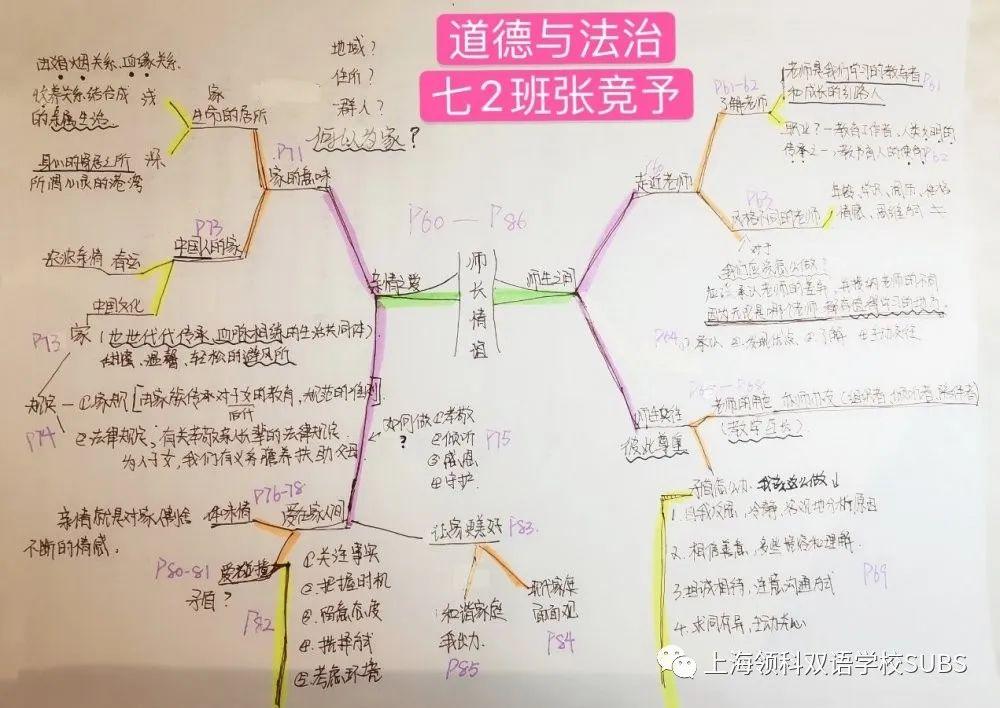 道德与法治
七2班张竞予
地域?
住所?
群人?
何以为家?
由婚姻关系、血缘关系、
收养关系结合成 浅
的亲属生活
家
生命的居所
身心的寄居之所 深
所谓心灵的港湾
P71
家的意味
P73
中国人的家
浓浓亲情
中国文化
P73
家(世世代代传承、血脉相连的生活共同体)
甜蜜、温馨、轻松的避风所
规定—①家规[由家族传承对子女的教育,规范的准则]
P74
②法律规定:有关孝敬家人长辈的法律规定.
为人子女,我们有义务赡养扶助父母
P60—P86
亲情之爱
师长情谊
师生之间
如何做
?
①孝敬
②倾听
③感恩
④守护.
P75
P76-78
亲情就是对家人割舍
不断的情感.
体味情
爱在家人间
P80-81
爱碰撞
矛盾?
P82
①关注事实
②把握时机
③留意态度
④选择方式
⑤考虑环境
让家更美好
P83
和谐家庭
我出力.
P85
现代家庭
面面观
P84
P60
走近老师
P61-62
了解老师
老师是我们学习的教导者
和成长的引路人
P61
职业?—教育工作者、人类文明的
传承之一,教书育人的使命
P62
P63
风格不同的老师
对于
我们应该怎么做?
应该承认老师的差异,并接纳老师的不同
P64
①承认 ②发现优点 ③了解 ④主动交往
师生交往
彼此尊重
P65—P68
老师的角色
(教学相长)
矛盾怎么办:我该这么做↓
1.自我反思,冷静,客观地分析原因
2.相信善意,多些宽容和理解.
3.坦诚相待,注意沟通方式
P69
4.求同存异,主动关心
上海领科双语学校SUBS